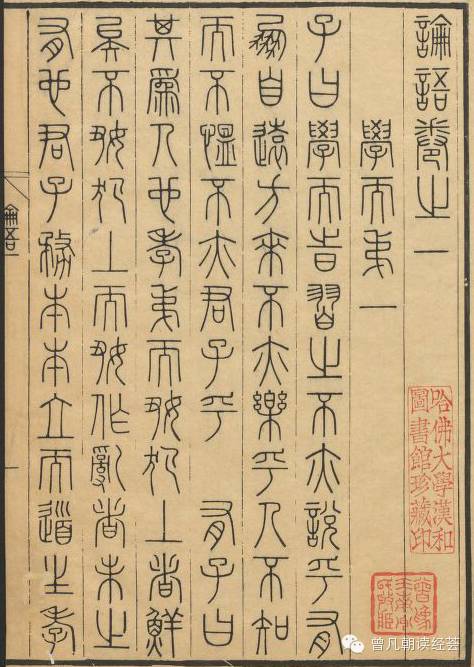 論語卷之一
學而弟一
子曰學而時習之不亦說乎有
朋自遠方來不亦樂乎人不知
而不慍不亦君子乎 有子曰
其爲人也孝弟而好犯上者鮮
矣不好犯上而好作亂者未之
有也君子務本本立而道生孝
論語一
一
哈佛大學漢和
圖書館珍藏印
曾凡朝读经荟